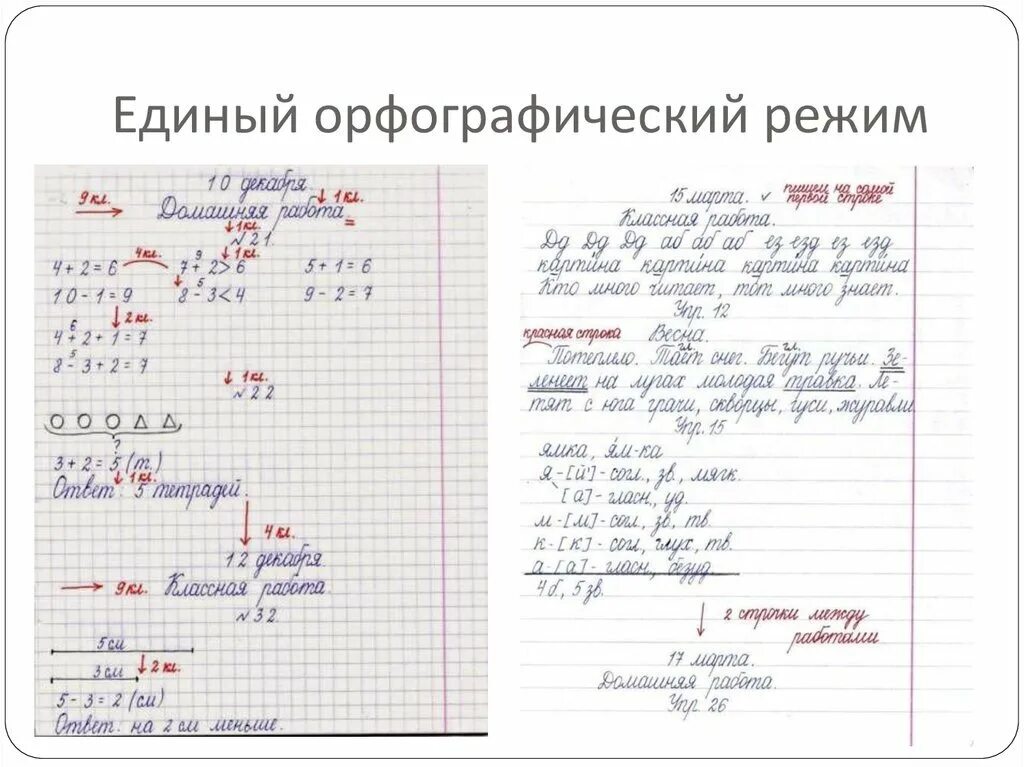 Единый орфографический режим
10 декабря.
9 кл. Домашняя работа. 1 кл.
1 кл.
№ 21.
4 кл. 9 1 кл.
4 + 2 = 6 7 + 2 > 6 5 + 1 = 6
5
10 - 1 = 9 8 - 3 < 4 9 - 2 = 7
2 кл.
6
4 + 2 + 1 = 7
5
8 - 3 + 2 = 7
1 кл.
№ 22
?
3 + 2 = 5 (т.)
1 кл.
Ответ: 5 тетрадей.
4 кл.
12 декабря.
9 кл. Классная работа.
№ 32.
5 см
3 см 2 кл.
5 - 3 = 2 (см)
Ответ: на 2 см меньше.
15 марта. пишем на самой первой строке
Классная работа.
Дд Дд Дд аб аб аб ез езд ез езд
картина картина картина картина
Кто много читает, тот много знает.
Упр. 12
красная строка Весна.
гл. гл.
Потеплело. Тает снег. Бегут ручьи. Зе-
ленеет на лугах молодая травка. Ле-
тят с юга грачи, скворцы, гуси, журавли.
Упр. 15
ямка, ям-ка
я - [й'] - согл., зв., мягк.
[а] - гласн., уд.
м - [м] - согл., зв., тв.
к - [к] - согл., глух., тв.
а - [а] - гласн., безуд.
4 б., 5 зв.
2 строчки между
работами
17 марта.
Домашняя работа.
Упр. 26